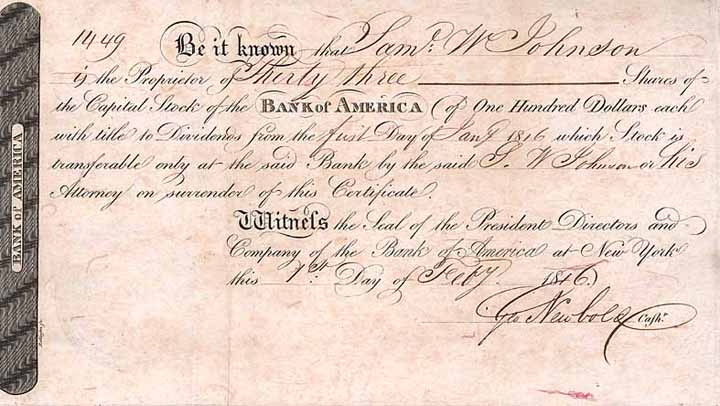 1449 Be it known that Sam.l W Johnson
is the Proprietor of Thirty three Shares of
the Capital Stock of the BANK of AMERICA (of One Hundred Dollars each
with title to Dividends from the first Day of Jany 1816 which Stock is
transferable only at the said Bank by the said S. W Johnson or his
Attorney on surrender of this Certificate.
Witness the Seal of the President Directors and
Company of the Bank of America at New York
this 1st Day of Feby. 1816)
Geo Newbold Cashr.
BANK of AMERICA